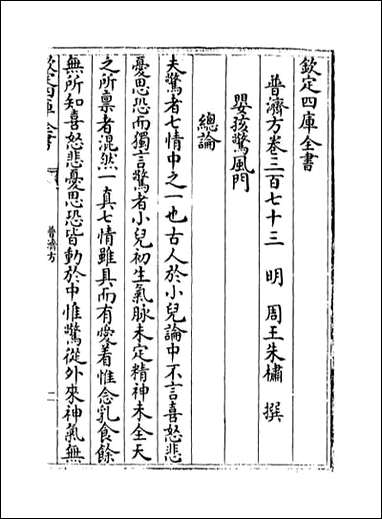 欽定四庫全書
普濟方卷三百七十三 明 周王朱橚 撰
嬰孩驚風門
總論
夫驚者七情中之一也古人於小兒論中不言喜怒悲
憂思恐而獨言驚者小兒初生氣脉未定精神未全天
之所禀者混然一真七情雖具而有愛着惟念乳食餘
無所知喜怒悲憂思恐皆動於中惟驚從外來神氣無
欽定四庫全書
普濟方